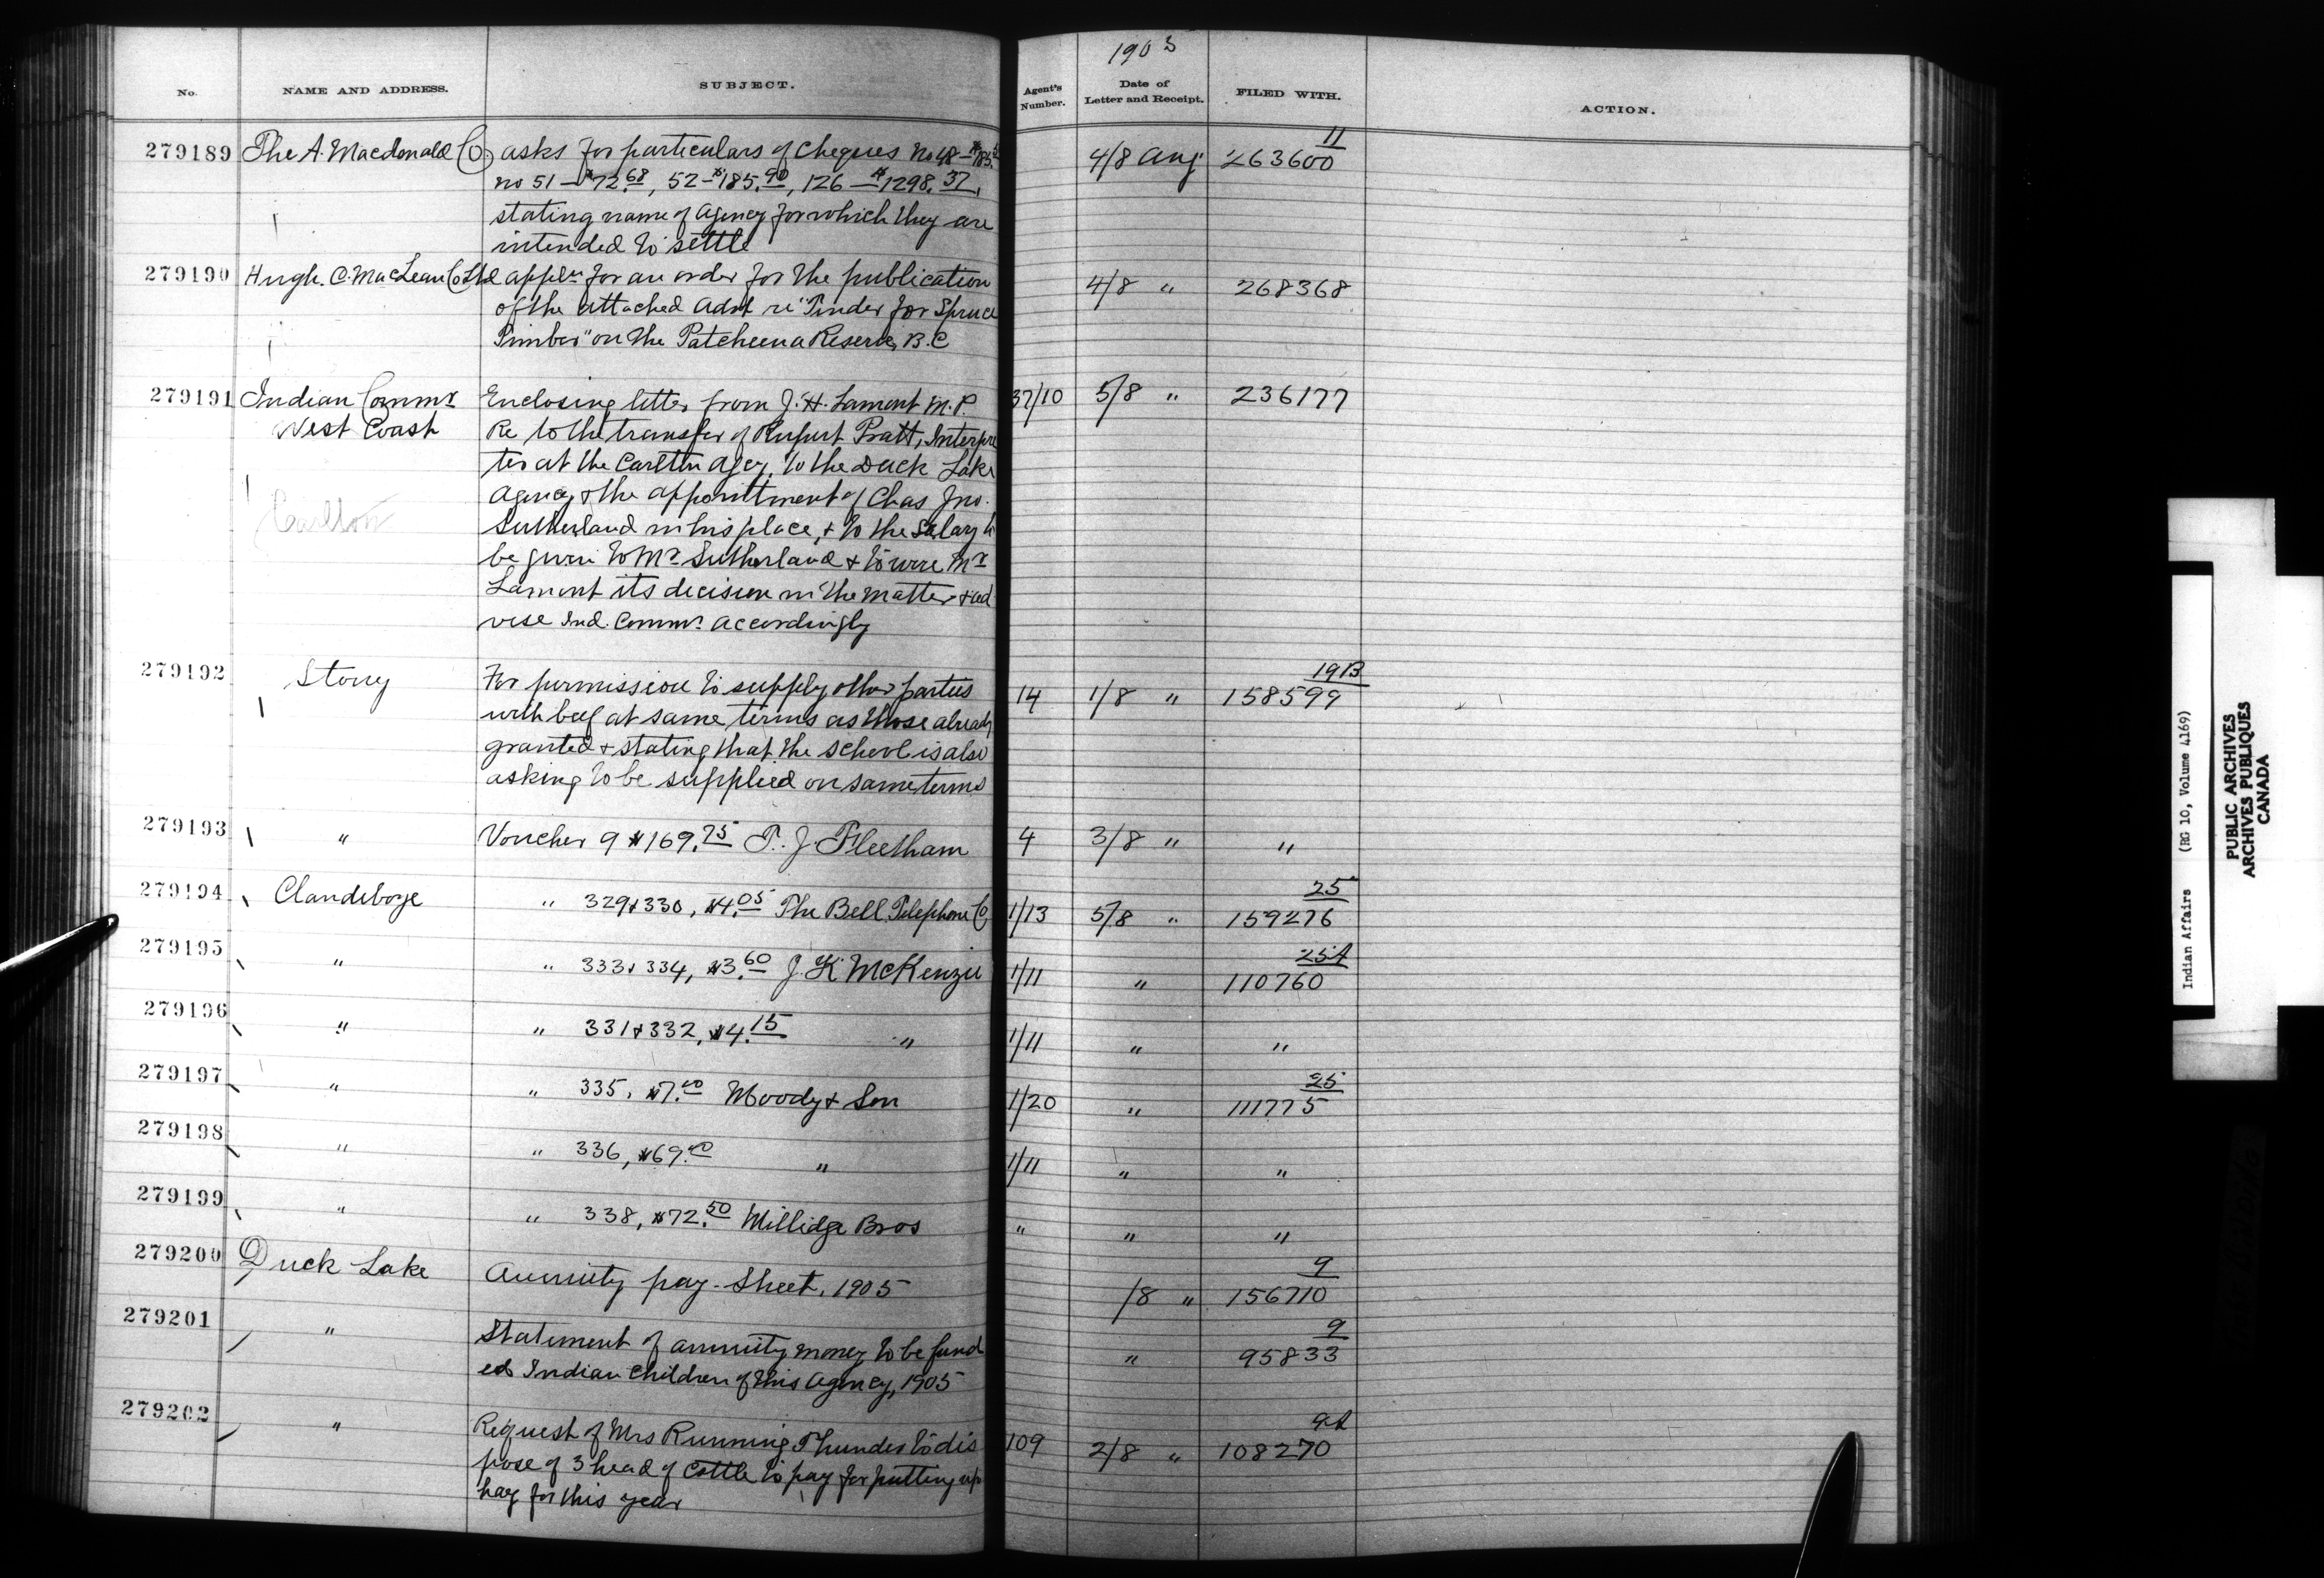 1903
No. NAME AND ADDRESS. SUBJECT. Agent's Number. Date of Letter and Receipt. FILED WITH. ACTION.
279189 The A. Macdonald Co. asks for particulars of cheques No 48 — 4/8 Aug 11 263600
no 51 — $72.68, 52 — $185.90, 126 — $1298.37,
stating name of Agency for which they are
intended to settle
279190 Hugh. C. MacLean Co Ltd appln for an order for the publication 4/8 " 268368
of the attached Advt re "Tinder for Spruce
Timber" on the Patcheena Reserve, B.C
279191 Indian Commr Enclosing letter from J. H. Lamont M.P. 37/10 5/8 " 236177
West Coast Re to the transfer of Rupert Pratt, Interpre
ter at the Carlton Agcy, to the Duck Lake
Carlton Agency & the appointment of Chas Jno.
Sutherland in his place, & to the Salary to
be given to Mr Sutherland & to wire Mr
Lamont its decision in the matter & ad
vise Ind. Commr accordingly
279192 Stony For permission to supply other parties 14 1/8 " 19B 158599
with beef at same terms as those already
granted & stating that the school is also
asking to be supplied on same terms
279193 " Voucher 9 $169.75 T. J. Fleetham 4 3/8 " "
279194 Clandeboye " 329 & 330, $4.05 The Bell Telephone Co 1/13 5/8 " 25 159276
279195 " " 333 & 334, $3.60 J. K. McKenzie 1/11 " 25A 110760
279196 " " 331 & 332, $4.15 " 1/11 " "
279197 " " 335, $7.00 Moody & Son 1/20 " 25 111775
279198 " " 336, $69.00 " 1/11 " "
279199 " " 338, $72.50 Millidge Bros " " "
279200 Duck Lake Annuity pay-Sheet, 1905 /8 " 9 156710
279201 " Statement of annuity money to be fund " 9 95833
ed Indian Children of this Agency, 1905
279202 " Request of Mrs Running Thunder to dis 109 2/8 " 9A 108270
pose of 3 head of Cattle to pay for putting up
hay for this year
Indian Affairs (RG 10, Volume 4169)
PUBLIC ARCHIVES
ARCHIVES PUBLIQUES
CANADA